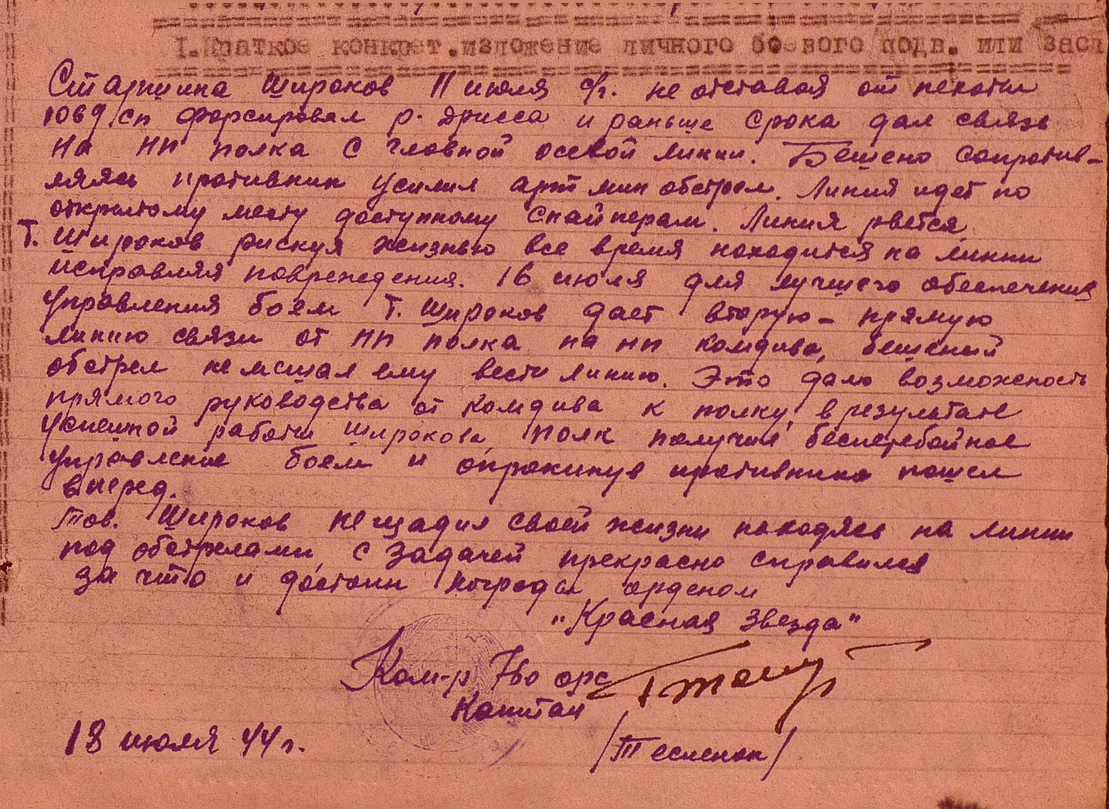 I. Краткое конкрет. изложение личного боевого подв. или засл
Старшина Широков 11 июля с/г. не отставая от пехоты
1069 сп форсировал р. Дрисса и раньше срока дал связь
на НП полка с главной осевой линии. Бешено сопротив-
ляясь противник усилил арт мин обстрел. Линия идет по
открытому месту доступному снайперам. Линия рвется
Т. Широков рискуя жизнью все время находится на линии
исправляя повреждения. 16 июля для лучшего обеспечения
управления боем Т. Широков дает вторую – прямую
линию связи от НП полка на НП комдива, бешеный
обстрел не мешал ему вести линию. Это дало возможность
прямого руководства от комдива к полку, в результате
успешной работы Широкова полк получил бесперебойное
управление боем и опрокинув противника пошел
вперед.
Тов. Широков не щадил своей жизни находясь на линии
под обстрелами с задачей прекрасно справился
за что и достоин награды орденом
"Красная Звезда"
Ком-р 760 орс
Капитан
18 июля 44 г.